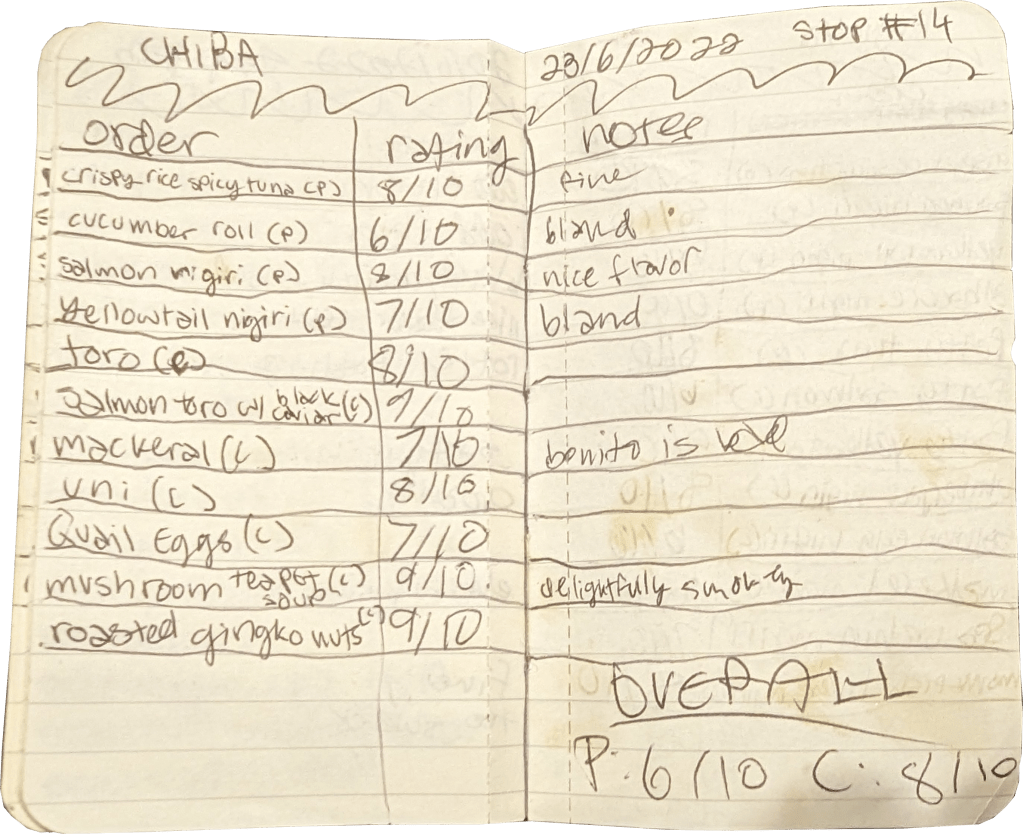 CHIBA 23/6/2022 STOP #14
order rating notes
crispy rice spicy tuna (p) 8/10 fine
cucumber roll (p) 6/10 bland
salmon nigiri (p) 8/10 nice flavor
yellowtail nigiri (p) 7/10 bland
toro (c) 8/10
salmon toro w/ black caviar (c) 9/10
mackeral (c) 7/10 bonito is
uni (c) 8/10
Quail Eggs (c) 7/10
mushroom teapot soup (c) 9/10 delightfully smokey
roasted gingko nuts (c) 9/10
OVERALL
P: 6/10 C: 8/10